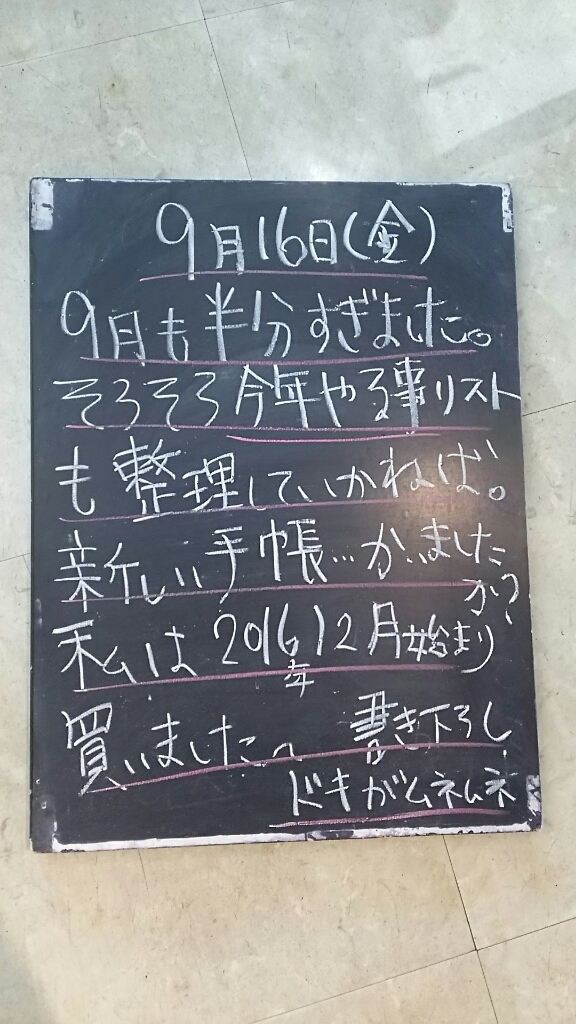 9月16日(金)
9月も半分すぎました。
そろそろ今年やる事リスト
も整理していかねば。
新しい手帳…かいました
か?
私は2016年12月始まり
買いました〜 書き下ろし
ドキがムネムネ